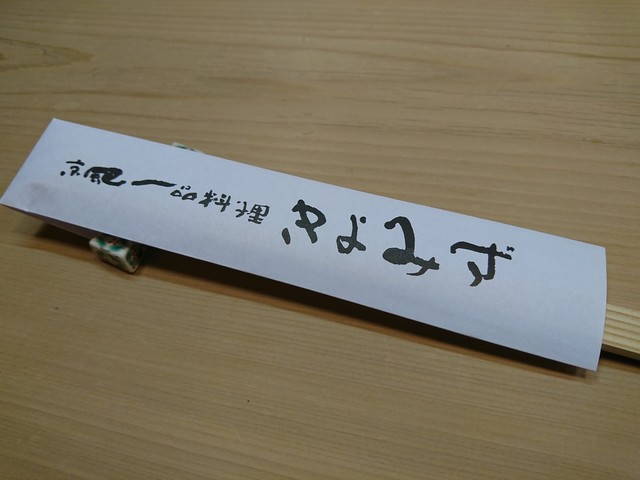 京風一品料理 やよみず